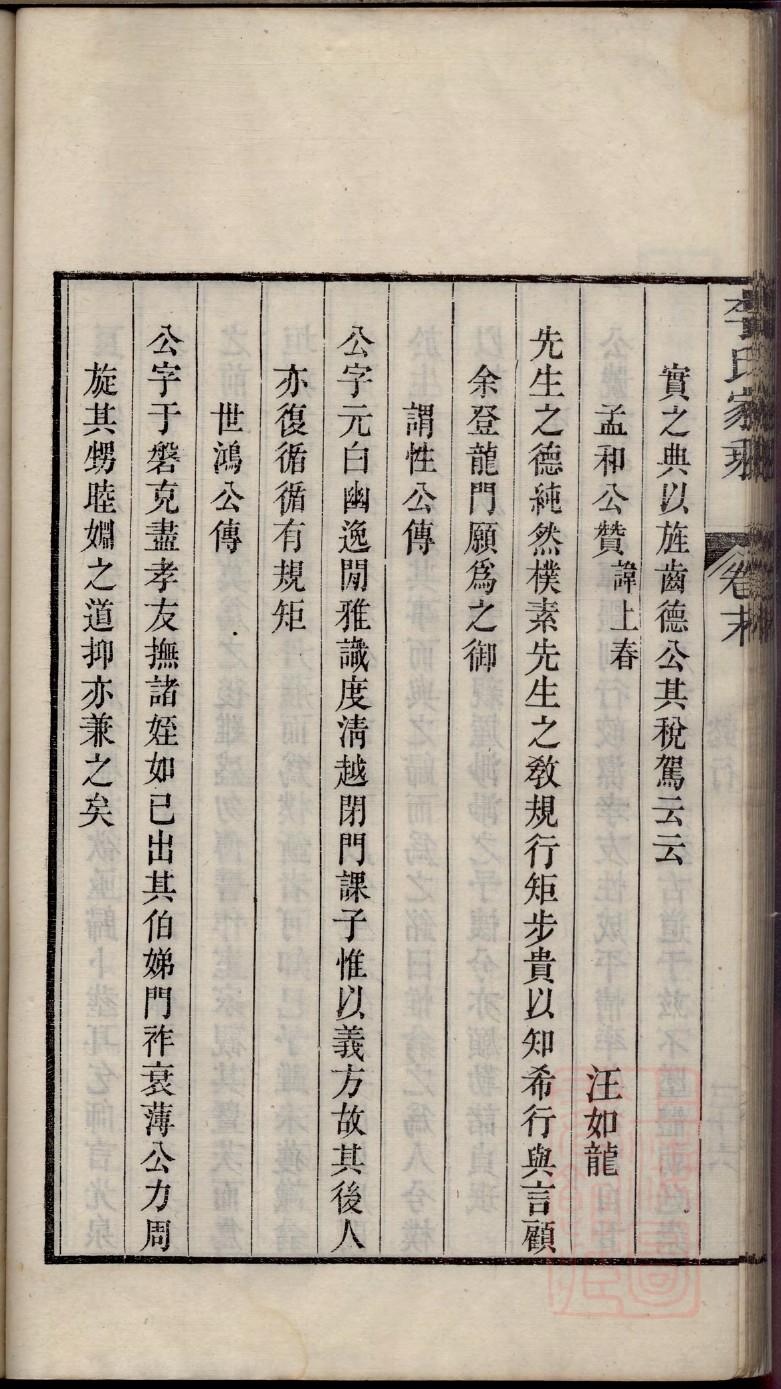 氏家
卷末
實之典以旌齒德公其稅駕云云
孟和公贊 諱上春 汪如龍
先生之德純然樸素先生之敎規行矩步貴以知希行與言顧
余登龍門願爲之御
謂性公傳
公字元白幽逸閒雅識度淸越閉門課子惟以義方故其後人
亦復循循有規矩
世鴻公傳
公字于磐克盡孝友撫諸姪如已出其伯娣門祚衰薄公力周
旋其甥睦婣之道抑亦兼之矣